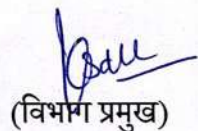 (विभाग प्रमुख)